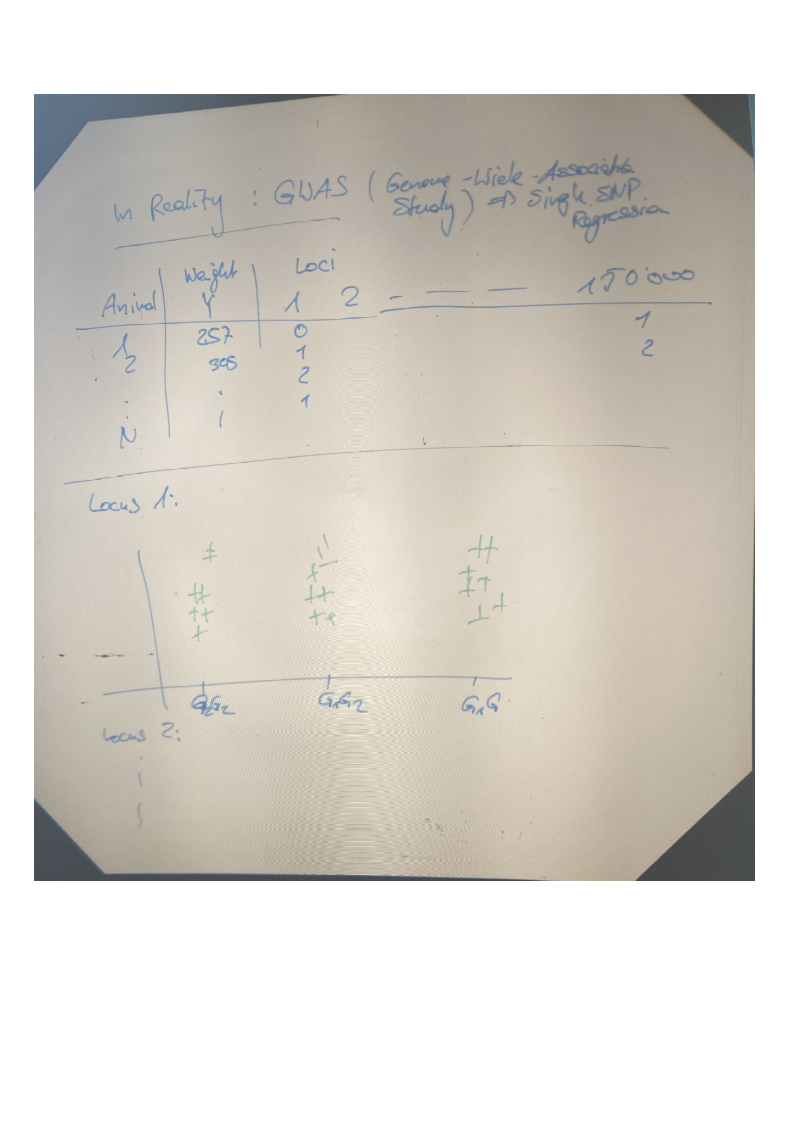 In Reality : GWAS (Genome-Wide-Associatio
Study) => Single SNP
Regression
Animal Weight Loci
Y 1 2 - — — 150'000
1 257 0 1
2 305 1 2
. . 2
. 1
N
Locus 1:
G2G2 G1G2 G1G
Locus 2: